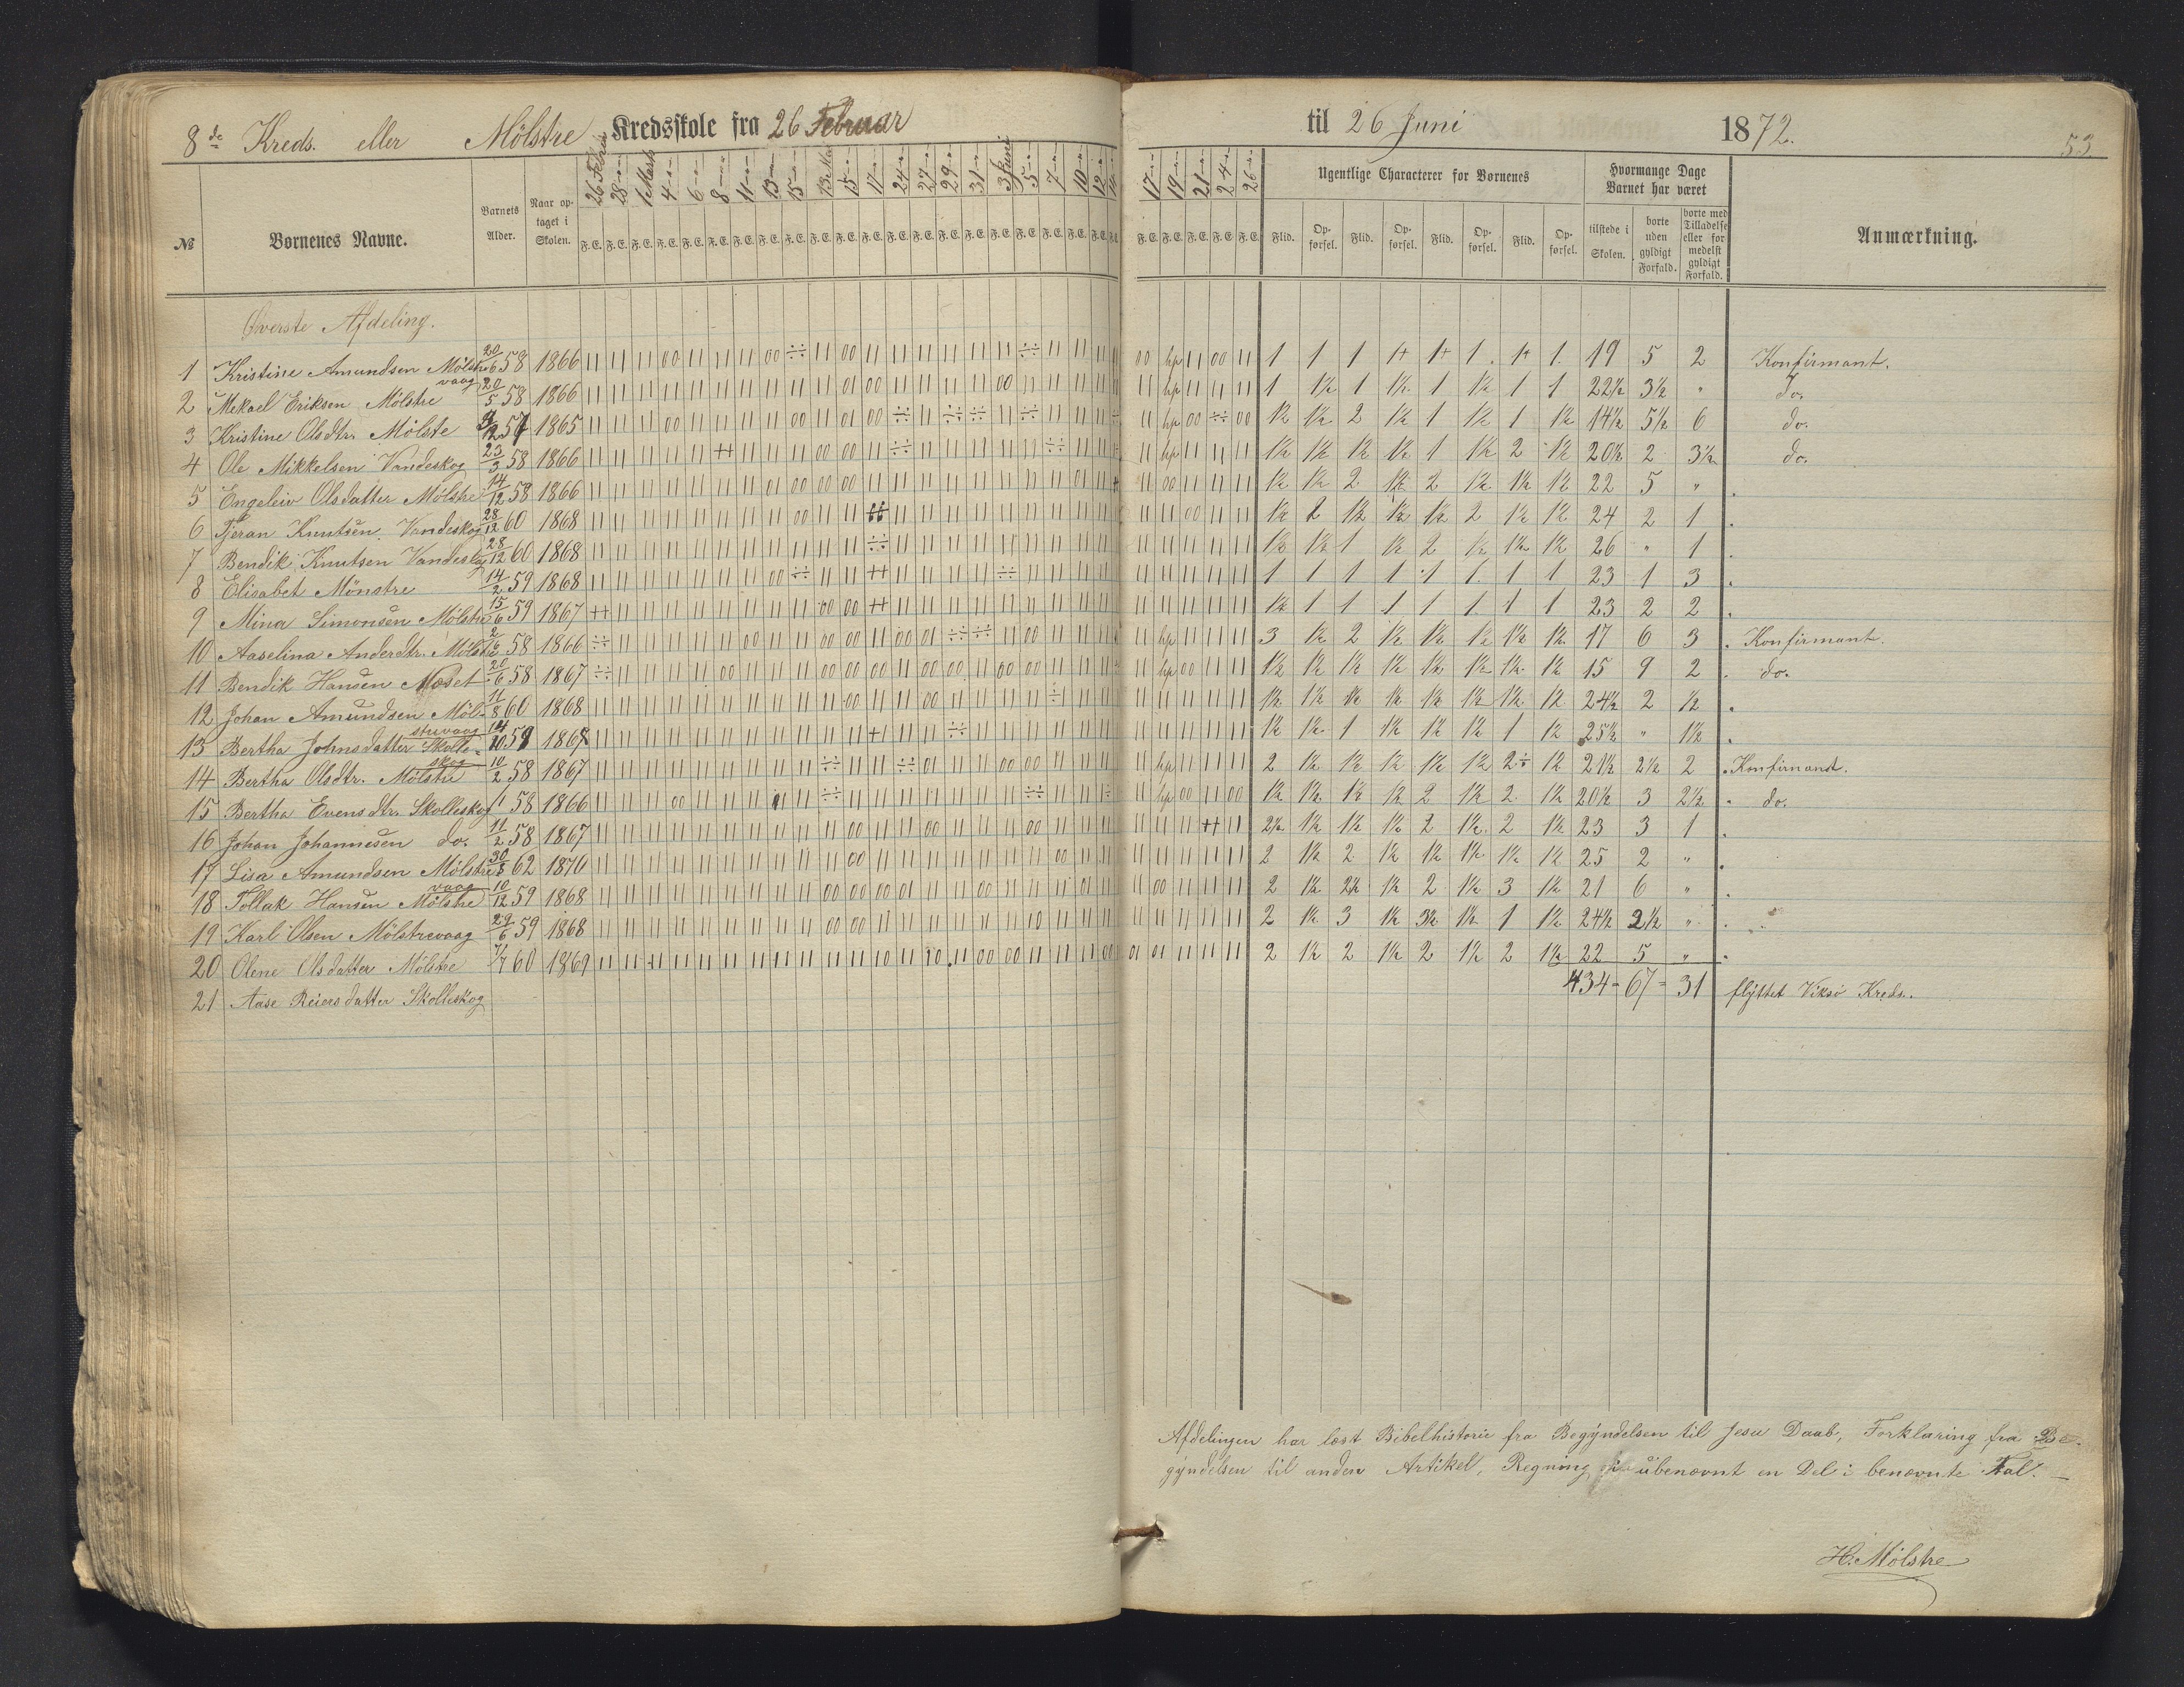 8de Kreds. eller Mölstre Kredsskole fra 26 Februar til 26 Juni 1872. 53.
26 Febru 28 1 Marts 4 6 8 11 13 15 13 Mai 15 17 24 27 29 31 3 Juni 5 7 10 12 14 17 19 21 24 26
№ Børnenes Navne. Barnets Alder. Naar optaget i Skolen. F. E. Ugentlige Characterer for Børnenes Hvormange Dage Barnet har været Anmærkning.
Flid. Opførsel. Flid. Opførsel. Flid. Opførsel. Flid. Opførsel. tilstede i Skolen. borte uden gyldigt Forfald. borte med Tilladelse eller formedelst gyldigt Forfald.
Øverste Afdeling.
1 Kristine Amundsen Mölstrevaag 20/6 58 1866 1 1 1 1+ 1+ 1 1+ 1 19 5 2 Konfirmant.
2 Mekael Eriksen Mölstre 20/5 58 1866 1 1½ 1 1½ 1 1½ 1 1 22½ 3½ " Do.
3 Kristine Olsdtr. Mölste 57 1865 1½ 1½ 2 1½ 1 1½ 1 1½ 14½ 5½ 6 do.
4 Ole Mikkelsen Vandeskog 23/3 58 1866 1½ 1½ 1½ 1½ 1 1½ 2 1½ 20½ 2 3½ do.
5 Engeleiv Olsdatter Mölstre 14/12 58 1866 1½ 1½ 2 1½ 2 1½ 1½ 1½ 22 5 "
6 Tjeran Knutsen Vandeskog 28/12 60 1868 1½ 2 1½ 1½ 1½ 2 1½ 1½ 24 2 1
7 Bendik Knutsen Vandeskog 28/12 60 1868 1½ 1½ 1 1½ 2 1½ 1½ 1½ 26 " 1
8 Elisabet Mönstre 14/2 59 1868 1 1 1 1 1 1 1 1 23 1 3
9 Mina Simonsen Mölstre 15/6 59 1867 1½ 1 1 1 1 1 1 1 23 2 2
10 Aaselina Anderdtr. Mölstre 2/6 58 1866 3 1½ 2 1½ 1½ 1½ 1½ 1½ 17 6 3 Konfirmant.
11 Bendik Hansen Moset 20/6 58 1867 1½ 1½ 1½ 1½ 1½ 1½ 1½ 1½ 15 9 2 do.
12 Johan Amundsen Mölstrevaag 11/8 60 1868 1½ 1½ 1½ 1½ 1½ 1½ 1½ 1½ 24½ 2 ½
13 Bertha Johnsdatter Skolleskog 1½ 1½ 1 1½ 1½ 1½ 1 1½ 25½ " 1½
14 Bertha Olsdtr. Mölstre 10/2 58 1867 2 1½ 1½ 1½ 1½ 1½ 2÷ 1½ 21½ 2½ 2 Konfirmand.
15 Bertha Evensdtr. Skolleskog 58 1866 1½ 1½ 1½ 1½ 2 1½ 2 1½ 20½ 3 2½ do.
16 Johan Johannesen do. 11/2 58 1867 2½ 1½ 1½ 1½ 2 1½ 2 1½ 23 3 1
17 Lisa Amundsen Mölstrevaag 62 1870 2 1½ 2 1½ 1½ 1½ 1½ 1½ 25 2 "
18 Tollak Hansen Mölstre 10/12 59 1868 2 1½ 2½ 1½ 2 1½ 3 1½ 21 6 "
19 Karl Olsen Mölstrevaag 29/6 59 1868 2 1½ 3 1½ 3½ 1½ 1 1½ 24½ 2½ "
20 Olene Olsdatter Mölstre 60 1869 2 1½ 2 1½ 2 1½ 2 1½ 22 5 "
434 = 67 = 31
21 Aase Reiersdatter Skolleskog flÿttet Viksö Kreds.
Afdelingen har læst Bibelhistorie fra Begÿndelsen til Jesu Daab, Forklaring fra Be-
gÿndelsen til anden Artikel, Regning i ubenævnt en Del i benævnte Tal.
H. Mölstre